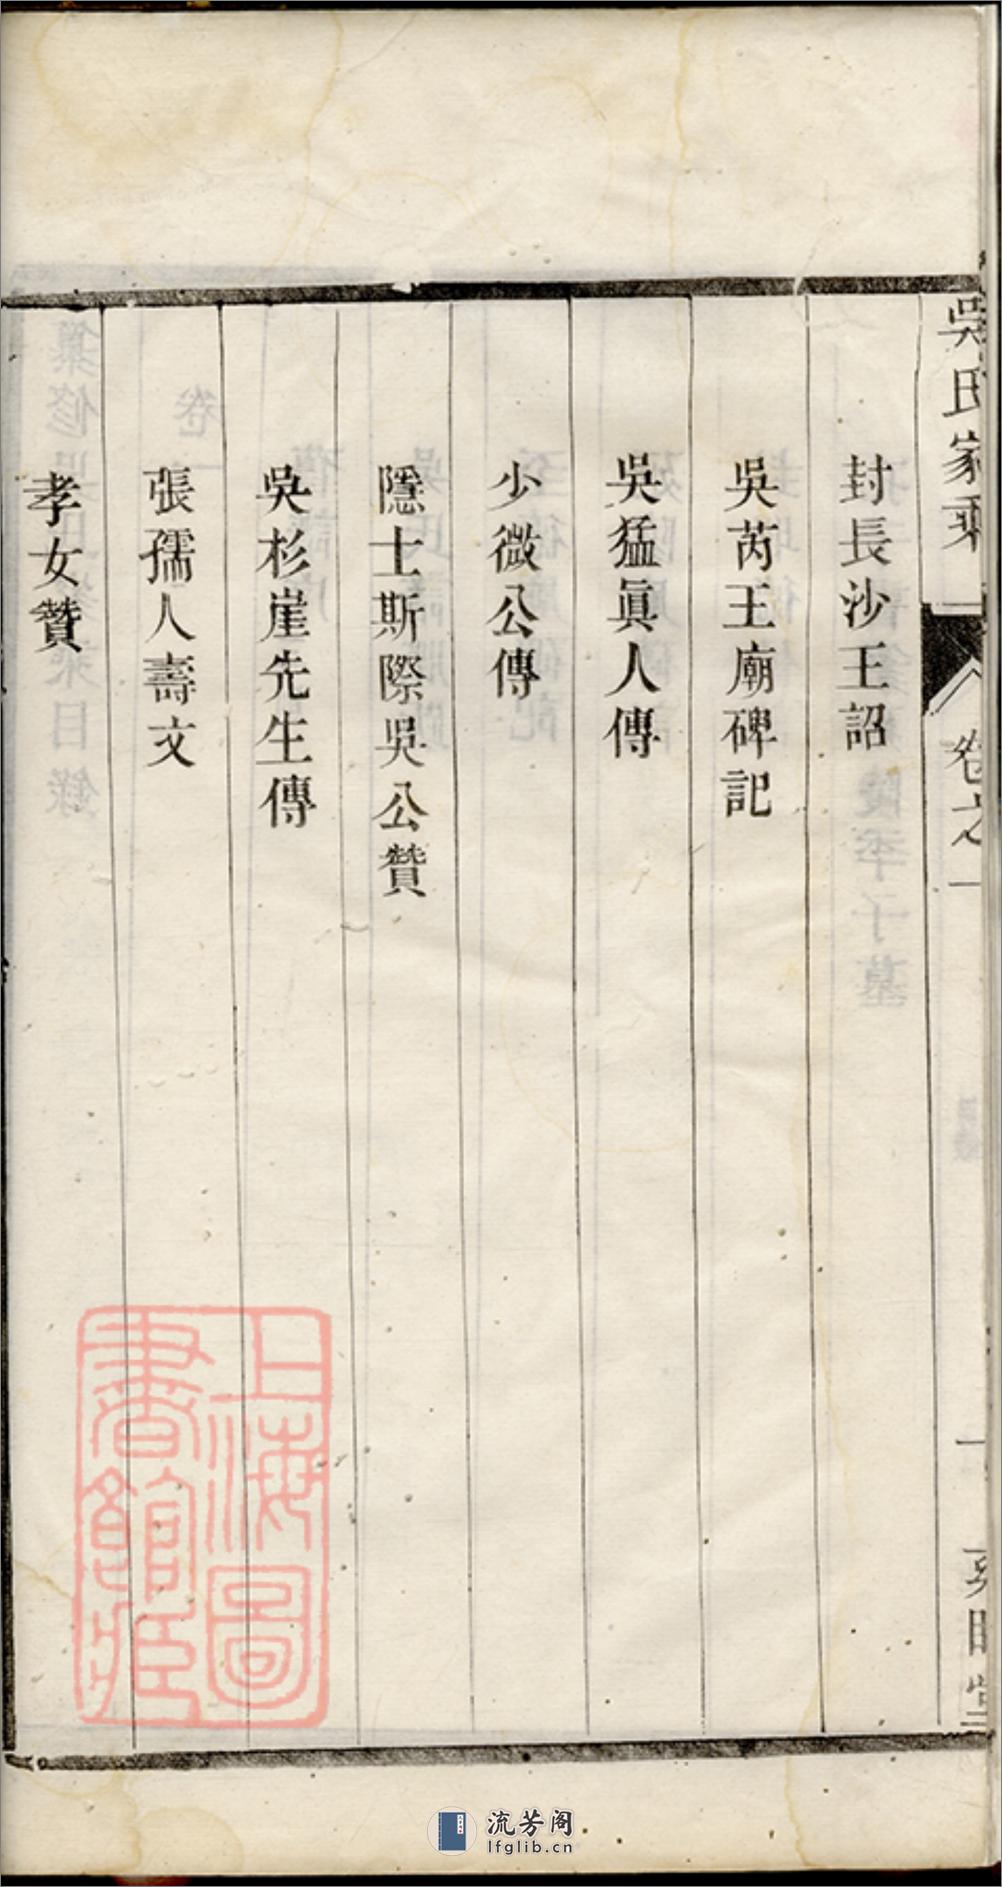 吳氏家乘
卷之一
一
封長沙王詔
吳芮王廟碑記
吳猛眞人傳
少微公傳
隱士斯際吳公贊
吳杉崖先生傳
張孺人壽文
孝女贊
上海圖
書館藏
流芳阁
lfglib.cn